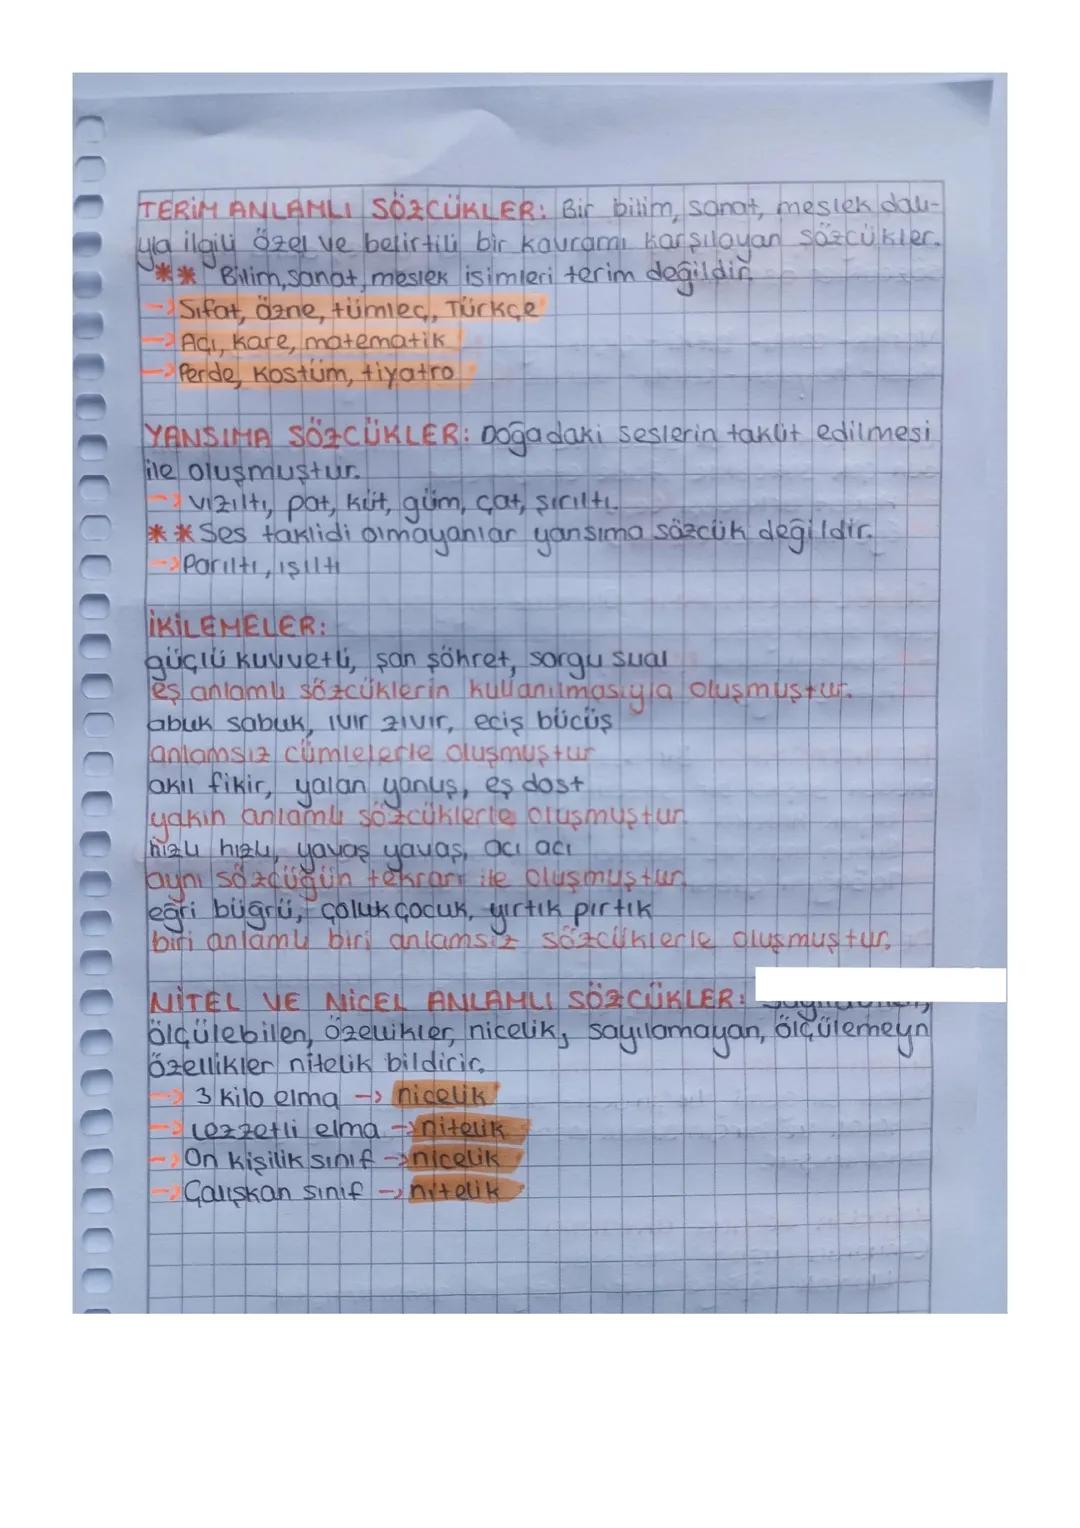 TERİM ANLAMLI SÖZCÜKLER: Bir bilim, sanat, meslek dalı-
yla ilgili özel ve belirtili bir kavramı karşılayan sözcükler.
** Bilim, sanat, meslek isimleri terim değildir.
→ Sıfat, özne, tümleç, Türkçe
→ Açı, kare, matematik
→ Perde, kostüm, tiyatro
YANSIMA SÖZCÜKLER: Doğadaki seslerin taklit edilmesi
ile oluşmuştur.
→ vızıltı, pat, küt, güm, çat, şırıltı.
** Ses taklidi olmayanlar yansıma sözcük değildir.
→ Parıltı, ışıltı
İKİLEMELER:
güçlü kuvvetli, şan şöhret, sorgu sual
eş anlamlı sözcüklerin kullanılmasıyla oluşmuştur.
abuk sabuk, ıvır zıvır, eciş bücüş
anlamsız cümlelerle oluşmuştur
akıl fikir, yalan yanlış, eş dost
yakın anlamlı sözcüklerle oluşmuştur.
hızlı hızlı, yavaş yavaş, acı acı
aynı sözcüğün tekrarı ile oluşmuştur.
eğri büğrü, çoluk çocuk, yırtık pırtık
biri anlamlı biri anlamsız sözcüklerle oluşmuştur.
NİTEL VE NİCEL ANLAMLI SÖZCÜKLER:
ölçülebilen, özellikler, nicelik, sayılamayan, ölçülemeyn
özellikler nitelik bildirir.
→ 3 kilo elma → nicelik
→ Lezzetli elma → nitelik
→ On kişilik sınıf → nicelik
→ Çalışkan sınıf → nitelik